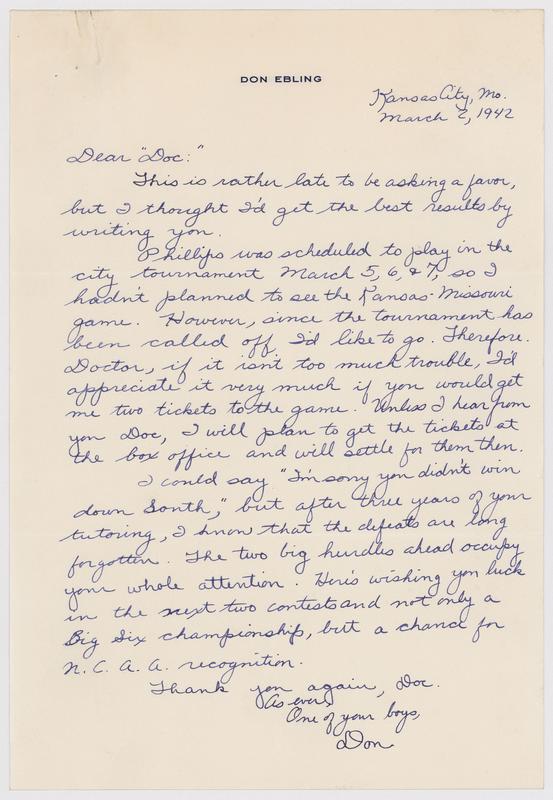 DON EBLING
Kansas City, Mo.
March 2, 1942
Dear "Doc:"
This is rather late to be asking a favor,
but I thought I'd get the best results by
writing you.
Phillips was scheduled to play in the
city tournament March 5, 6, & 7, so I
hadn't planned to see the Kansas-Missouri
game. However, since the tournament has
been called off I'd like to go. Therefore.
Doctor, if it isn't too much trouble, I'd
appreciate it very much if you would get
me two tickets to the game. Unless I hear from
you Doc, I will plan to get the tickets at
the box office and will settle for them then.
I could say "I'm sorry you didn't win
down South," but after three years of your
tutoring, I know that the defeats are long
forgotten. The two big hurdles ahead occupy
your whole attention. Here's wishing you luck
in the next two contests and not only a
Big Six championship, but a chance for
N.C.A.A. recognition.
Thank you again, Doc.
As ever,
One of your boys,
Don